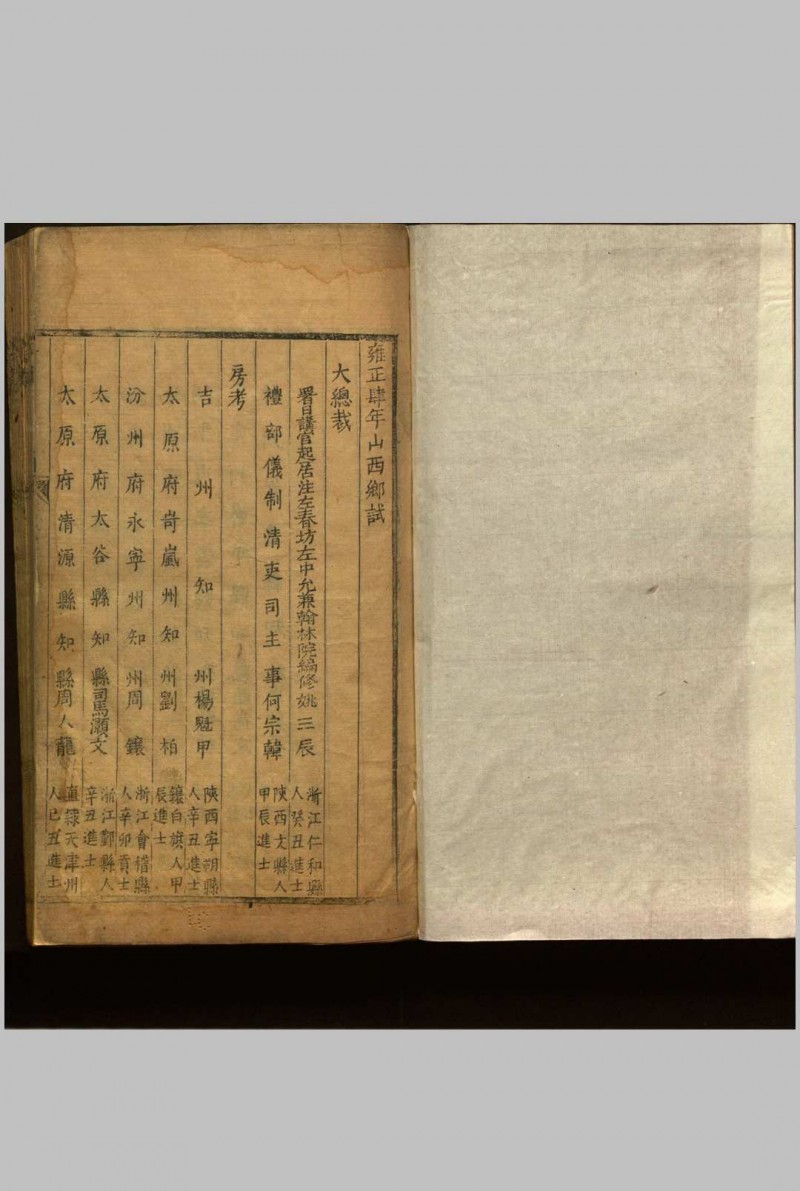 雍正肆年山西鄉試
大總裁
署日講官起居注左春坊左中允兼翰林院編修姚三辰 浙江仁和縣人癸丑進士
禮部儀制清吏司主事何宗韓 陝西文縣人甲辰進士
房考
吉州知州楊魁甲 陝西寧朔縣人辛丑進士
太原府岢嵐州知州劉柏 鑲白旗人甲辰進士
汾州府永寧州知州周鑲 浙江會稽縣人辛卯貢士
太原府太谷縣知縣司馬灝文 浙江鄞縣人辛丑進士
太原府清源縣知縣周人龍 直隸天津州人己丑進士